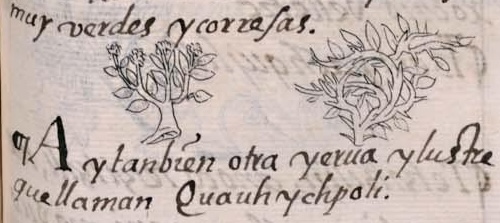 muy verdes ycorreosas.
¶ Aytanbién otra yerua ylustre
quellaman Quauhychpoli.